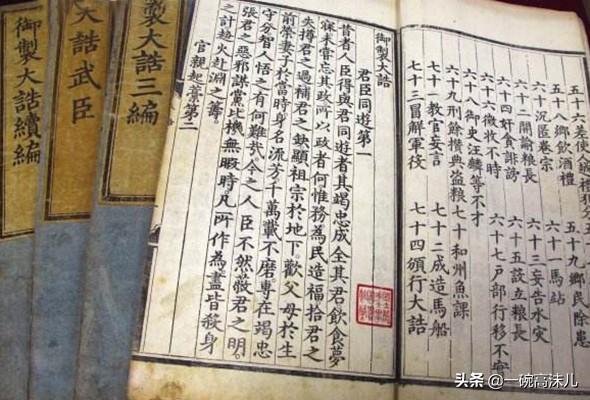 五十八鄉飲酒禮 五十九鄉民除患
六十沉匿卷宗 六十一馬站
六十二開諭糧長 六十三妄告水災
六十四奸貪誹謗 六十五設立糧長
六十六徵收不時 六十七戶部行移不實
六十八御史汪麟等不才
六十九刑餘攢典盜糧 七十和州魚課
七十一教官妄言 七十二成造馬船
七十三冒解軍役 七十四頒行大誥
御製大誥
君臣同遊第一
昔者人臣得與君同遊者其竭忠成全其君飲食夢
寐未嘗忘其政所以政者何惟務為民造福拾君之
失撙君之過補君之缺顯祖宗於地下歡父母於生
前榮妻子於當時身名流方千萬載不磨專在竭忠
守分智人悟之有何難哉今之人臣不然蔽君之明
張君之惡邪謀黨比機無暇時凡所作為盡皆殺身
之計趨火赴淵之籌
官親起藁第二
製大誥三編
大誥武臣
御製大誥續編
头条 @一碗高沫儿